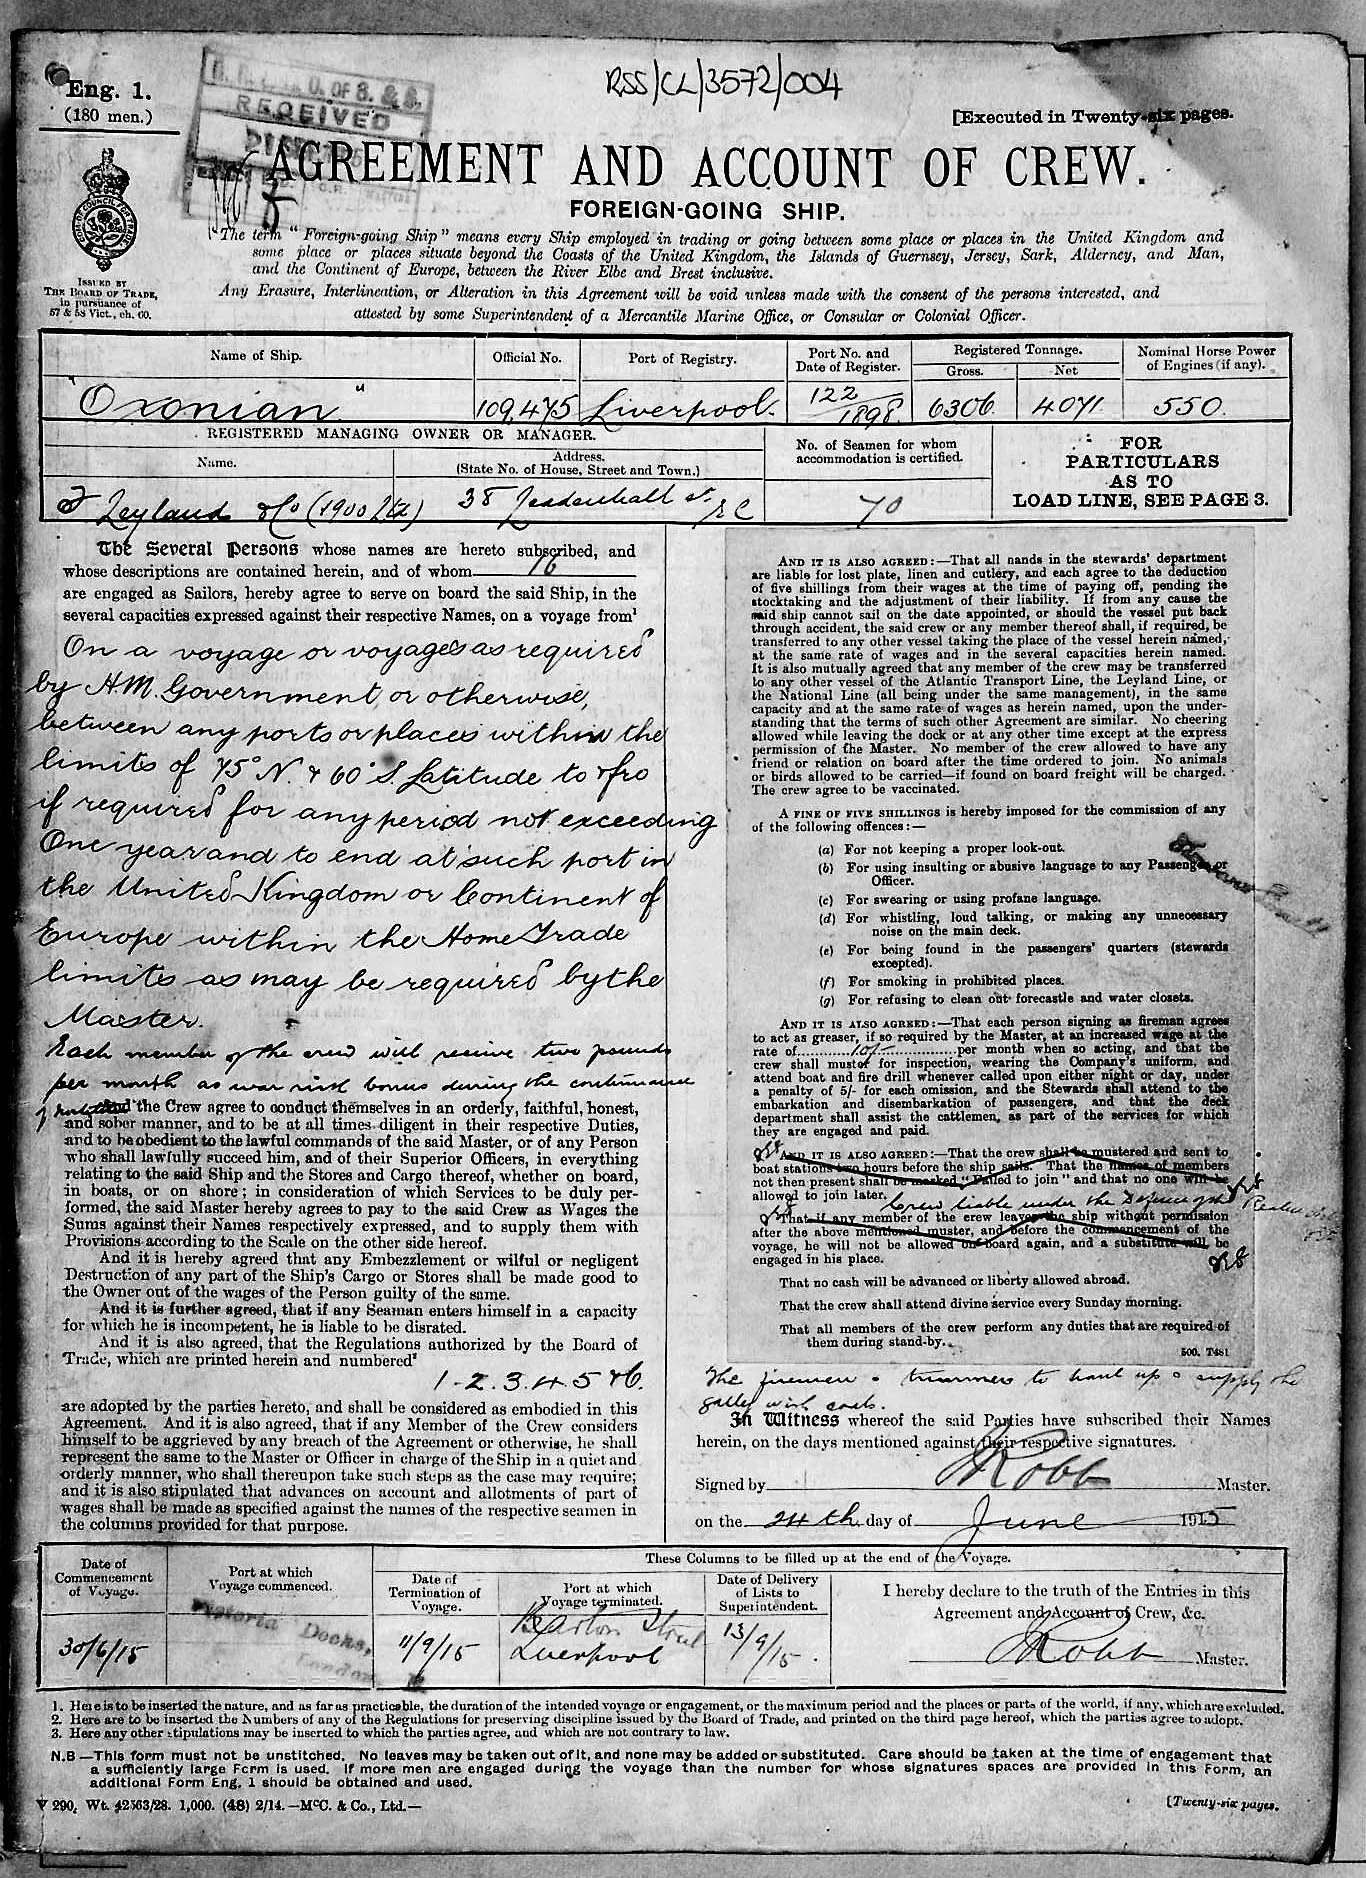 RSS/CL/3572/004
Eng. 1.
(180 men.)
O. OF S. & S.
RECEIVED
[Executed in Twenty-six pages.
AGREEMENT AND ACCOUNT OF CREW.
FOREIGN-GOING SHIP.
ISSUED BY
THE BOARD OF TRADE,
in pursuance of
57 & 58 Vict., ch. 60.
The term "Foreign-going Ship" means every Ship employed in trading or going between some place or places in the United Kingdom and
some place or places situate beyond the Coasts of the United Kingdom, the Islands of Guernsey, Jersey, Sark, Alderney, and Man,
and the Continent of Europe, between the River Elbe and Brest inclusive.
Any Erasure, Interlineation, or Alteration in this Agreement will be void unless made with the consent of the persons interested, and
attested by some Superintendent of a Mercantile Marine Office, or Consular or Colonial Officer.
Name of Ship.
Official No.
Port of Registry.
Port No. and
Date of Register.
Registered Tonnage.
Gross.
Net
Nominal Horse Power
of Engines (if any).
"Oxonian"
109,475
Liverpool.
122
1898
6306
4071
550.
REGISTERED MANAGING OWNER OR MANAGER.
Name.
Address.
(State No. of House, Street and Town.)
No. of Seamen for whom
accommodation is certified.
FOR
PARTICULARS
AS TO
LOAD LINE, SEE PAGE 3.
F Leyland & Co (1900 Ltd)
38 Leadenhall St EC
70
The Several Persons whose names are hereto subscribed, and
whose descriptions are contained herein, and of whom 16
are engaged as Sailors, hereby agree to serve on board the said Ship, in the
several capacities expressed against their respective Names, on a voyage from¹
On a voyage or voyages as required
by H.M. Government or otherwise,
between any ports or places within the
limits of 75° N. & 60° S. Latitude to & fro
if required for any period not exceeding
One year and to end at such port in
the United Kingdom or Continent of
Europe within the Home Trade
limits as may be required by the
Master.
Each member of the crew will receive two pounds
per month as war risk bonus during the continuance
of
the Crew agree to conduct themselves in an orderly, faithful, honest,
and sober manner, and to be at all times diligent in their respective Duties,
and to be obedient to the lawful commands of the said Master, or of any Person
who shall lawfully succeed him, and of their Superior Officers, in everything
relating to the said Ship and the Stores and Cargo thereof, whether on board,
in boats, or on shore; in consideration of which Services to be duly per-
formed, the said Master hereby agrees to pay to the said Crew as Wages the
Sums against their Names respectively expressed, and to supply them with
Provisions according to the Scale on the other side hereof.
And it is hereby agreed that any Embezzlement or wilful or negligent
Destruction of any part of the Ship's Cargo or Stores shall be made good to
the Owner out of the wages of the Person guilty of the same.
And it is further agreed, that if any Seaman enters himself in a capacity
for which he is incompetent, he is liable to be disrated.
And it is also agreed, that the Regulations authorized by the Board of
Trade, which are printed herein and numbered²
1. 2. 3. 4. 5 & 6.
are adopted by the parties hereto, and shall be considered as embodied in this
Agreement. And it is also agreed, that if any Member of the Crew considers
himself to be aggrieved by any breach of the Agreement or otherwise, he shall
represent the same to the Master or Officer in charge of the Ship in a quiet and
orderly manner, who shall thereupon take such steps as the case may require;
and it is also stipulated that advances on account and allotments of part of
wages shall be made as specified against the names of the respective seamen in
the columns provided for that purpose.
AND IT IS ALSO AGREED:—That all hands in the stewards' department
are liable for lost plate, linen and cutlery, and each agree to the deduction
of five shillings from their wages at the time of paying off, pending the
stocktaking and the adjustment of their liability. If from any cause the
said ship cannot sail on the date appointed, or should the vessel put back
through accident, the said crew or any member thereof shall, if required, be
transferred to any other vessel taking the place of the vessel herein named,
at the same rate of wages and in the several capacities herein named.
It is also mutually agreed that any member of the crew may be transferred
to any other vessel of the Atlantic Transport Line, the Leyland Line, or
the National Line (all being under the same management), in the same
capacity and at the same rate of wages as herein named, upon the under-
standing that the terms of such other Agreement are similar. No cheering
allowed while leaving the dock or at any other time except at the express
permission of the Master. No member of the crew allowed to have any
friend or relation on board after the time ordered to join. No animals
or birds allowed to be carried—if found on board freight will be charged.
The crew agree to be vaccinated.
A FINE OF FIVE SHILLINGS is hereby imposed for the commission of any
of the following offences:—
(a) For not keeping a proper look-out.
(b) For using insulting or abusive language to any Passenger or
Officer.
(c) For swearing or using profane language.
(d) For whistling, loud talking, or making any unnecessary
noise on the main deck.
(e) For being found in the passengers' quarters (stewards
excepted).
(f) For smoking in prohibited places.
(g) For refusing to clean out forecastle and water closets.
AND IT IS ALSO AGREED:—That each person signing as fireman agrees
to act as greaser, if so required by the Master, at an increased wage at the
rate of 10/- per month when so acting, and that the
crew shall muster for inspection, wearing the Company's uniform, and
attend boat and fire drill whenever called upon either night or day, under
a penalty of 5/- for each omission, and the Stewards shall attend to the
embarkation and disembarkation of passengers, and that the deck
department shall assist the cattlemen, as part of the services for which
they are engaged and paid.
AND IT IS ALSO AGREED:—That the crew shall be mustered and sent to
boat stations two hours before the ship sails. That the names of members
not then present shall be marked "Failed to join" and that no one will be
allowed to join later.
Crew liable under the Defence of the Realm Act
That if any member of the crew leaves the ship without permission
after the above mentioned muster, and before the commencement of the
voyage, he will not be allowed on board again, and a substitute will be
engaged in his place.
That no cash will be advanced or liberty allowed abroad.
That the crew shall attend divine service every Sunday morning.
That all members of the crew perform any duties that are required of
them during stand-by.
500. T481
The firemen & trimmers to haul up & supply the
galley with coals.
In Witness whereof the said Parties have subscribed their Names
herein, on the days mentioned against their respective signatures.
Signed by Robb Master.
on the 24th day of June 1915
Date of
Commencement
of Voyage.
Port at which
Voyage commenced.
These Columns to be filled up at the end of the Voyage.
Date of
Termination of
Voyage.
Port at which
Voyage terminated.
Date of Delivery
of Lists to
Superintendent.
I hereby declare to the truth of the Entries in this
Agreement and Account of Crew, &c.
30/6/15
Victoria Docks,
London
11/9/15
Barton Street
Liverpool
13/9/15.
Robb Master.
1. Here is to be inserted the nature, and as far as practicable, the duration of the intended voyage or engagement, or the maximum period and the places or parts of the world, if any, which are excluded.
2. Here are to be inserted the Numbers of any of the Regulations for preserving discipline issued by the Board of Trade, and printed on the third page hereof, which the parties agree to adopt.
3. Here any other stipulations may be inserted to which the parties agree, and which are not contrary to law.
N.B—This form must not be unstitched. No leaves may be taken out of it, and none may be added or substituted. Care should be taken at the time of engagement that
a sufficiently large Form is used. If more men are engaged during the voyage than the number for whose signatures spaces are provided in this Form, an
additional Form Eng. 1 should be obtained and used.
V 290, Wt. 42563/28. 1,000. (48) 2/14.—McC. & Co., Ltd.—
[Twenty-six pages.